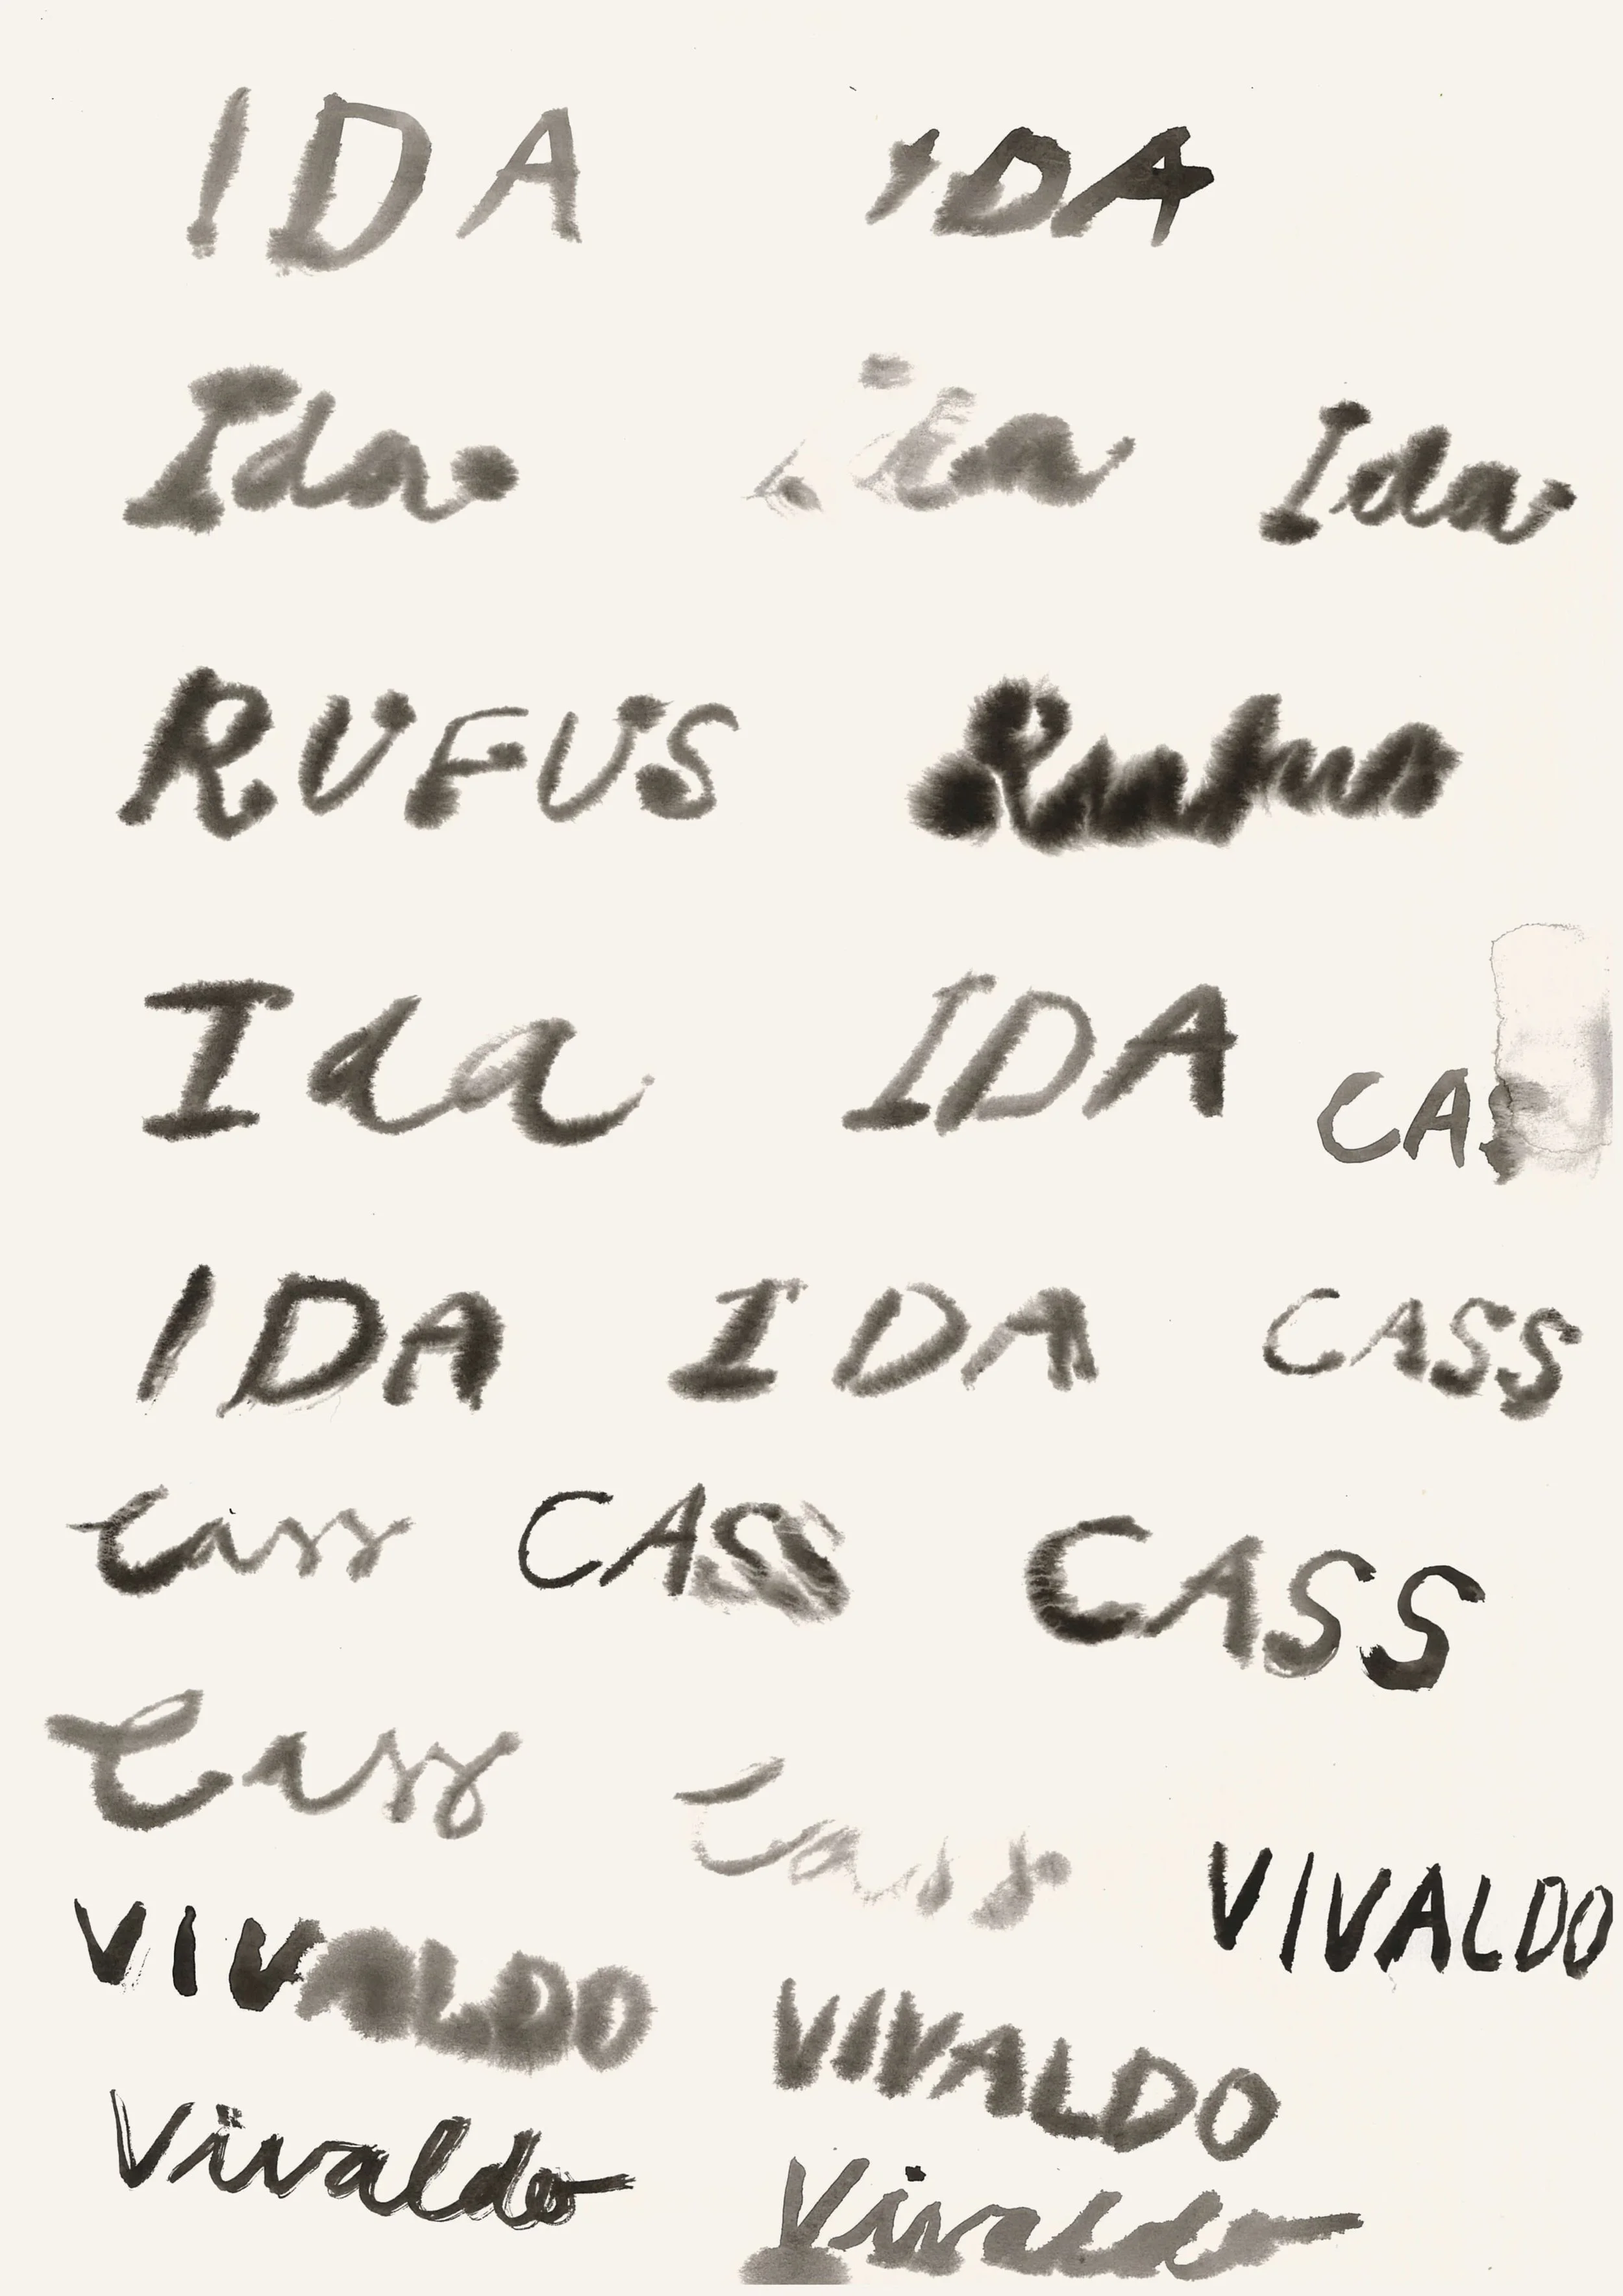 IDA IDA
Ida Ida Ida
RUFUS Rufus
Ida IDA CAS
IDA IDA CASS
Cass CASS CASS
Cass Cass VIVALDO
VIVALDO VIVALDO
Vivaldo Vivaldo